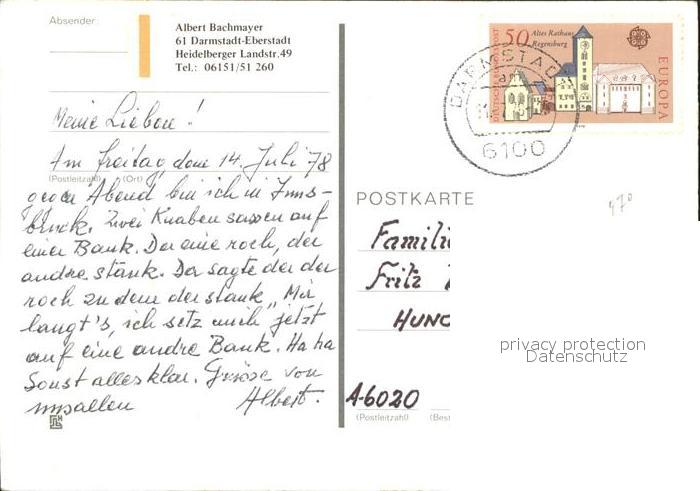 Absender:
Albert Bachmayer
61 Darmstadt-Eberstadt
Heidelberger Landstr.49
Tel.: 06151/51 260
Meine Lieben!
Am Freitag, dem 14. Juli 78
(Postleitzahl) (Ort)
gegen Abend bin ich in Inns-
bruck. Zwei Knaben sassen auf
einer Bank. Der eine roch, der
andre stank. Da sagte der der
roch zu dem der stank „Mir
langt's, ich setz mich jetzt
auf eine andre Bank. Ha ha
Sonst alles klar. Grüsse von
uns allen Albert.
DEUTSCHE BUNDESPOST
50
Altes Rathaus
Regensburg
EUROPA
DARMSTADT
6100
POSTKARTE
470
Famili
Fritz
HUNG
A-6020
(Postleitzahl) (Best
privacy protection
Datenschutz